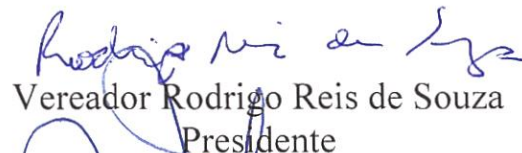 Rodrigo Reis de Souza
Vereador Rodrigo Reis de Souza
Presidente